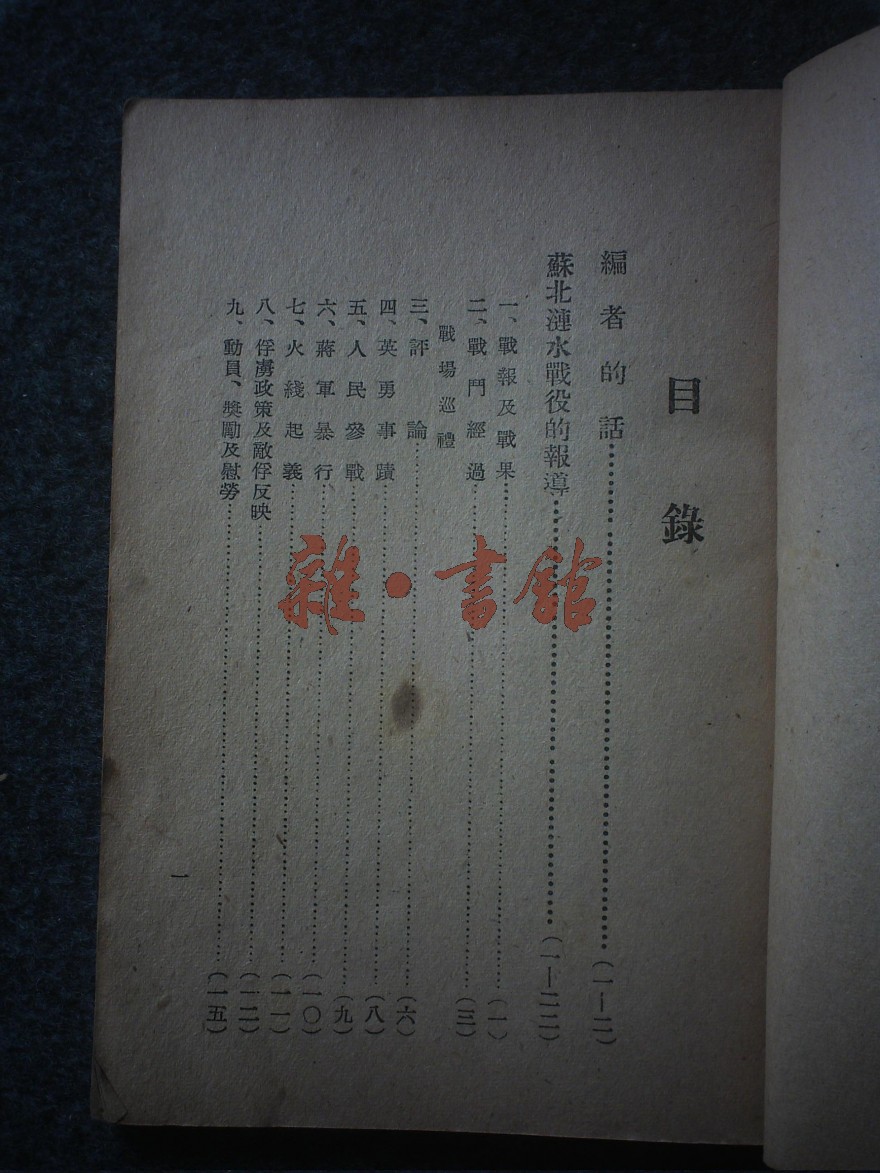 目錄
編者的話……(一—二)
蘇北漣水戰役的報導……(一—二二)
一、戰報及戰果……(一)
二、戰鬥經過……(三)
戰場巡禮
三、評論……(六)
四、英勇事蹟……(八)
五、人民參戰……(九)
六、蔣軍暴行……(一〇)
七、火綫起義……(一一)
八、俘虜政策及敵俘反映……(一二)
九、動員、獎勵及慰勞……(一五)
一
雜·書館